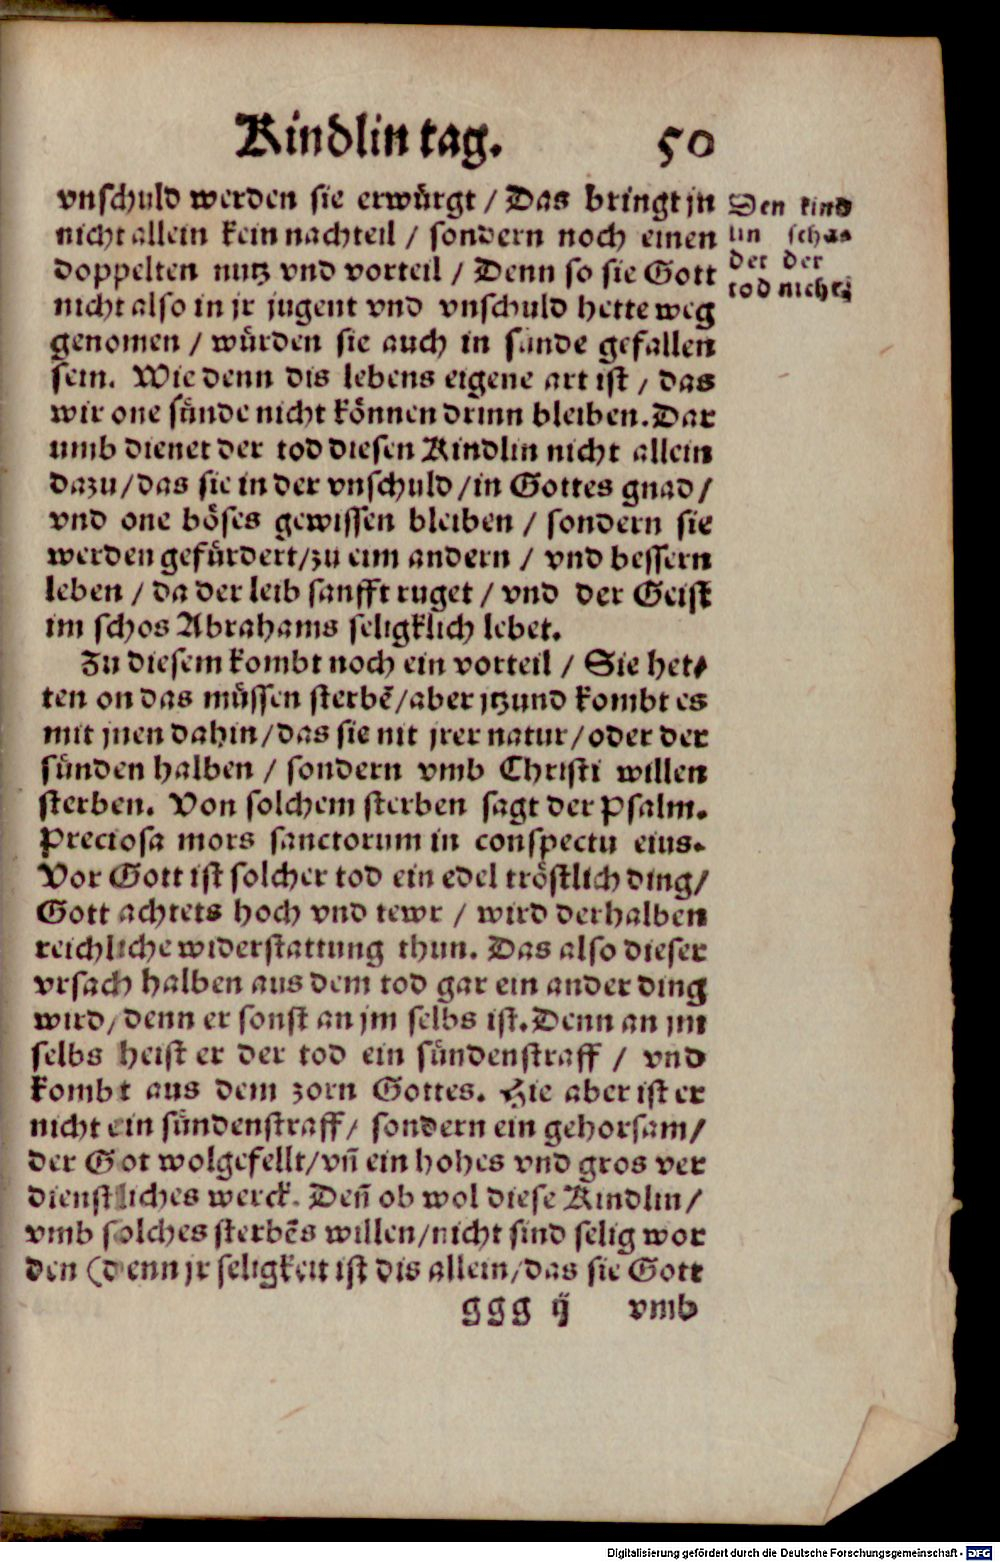 Kindlin tag. 50
vnschuld werden sie erwürgt / Das bringt jn
nicht allein kein nachteil / sondern noch einen
doppelten nutz vnd vorteil / Denn so sie Gott
nicht also in jr jugent vnd vnschuld hette weg
genomen / würden sie auch in sünde gefallen
sein. Wie denn dis lebens eigene art ist / das
wir one sünde nicht können drinn bleiben. Dar
umb dienet der tod diesen Kindlin nicht allein
dazu / das sie in der vnschuld / in Gottes gnad /
vnd one böses gewissen bleiben / sondern sie
werden gefürdert / zu eim andern / vnd bessern
leben / da der leib sanfft ruget / vnd der Geist
im schos Abrahams seligklich lebet.
Zu diesem kombt noch ein vorteil / Sie het⸗
ten on das müssen sterbē / aber jtzund kombt es
mit jnen dahin / das sie nit jrer natur / oder der
sünden halben / sondern vmb Christi willen
sterben. Von solchem sterben sagt der Psalm.
Preciosa mors sanctorum in conspectu eius.
Vor Gott ist solcher tod ein edel tröstlich ding /
Gott achtets hoch vnd tewr / wird derhalben
reichliche widerstattung thun. Das also dieser
vrsach halben aus dem tod gar ein ander ding
wird / denn er sonst an jm selbs ist. Denn an jm
selbs heist er der tod ein sündenstraff / vnd
kombt aus dem zorn Gottes. Hie aber ist er
nicht ein sündenstraff / sondern ein gehorsam /
der Got wolgefellt / vñ ein hohes vnd gros ver
dienstliches werck. Deñ ob wol diese Kindlin /
vmb solches sterbēs willen / nicht sind selig wor
den (denn jr seligkeit ist dis allein / das sie Gott
ggg ij vmb
Den kind
lin scha⸗
det der
tod nichts
Digitalisierung gefördert durch die Deutsche Forschungsgemeinschaft - DFG